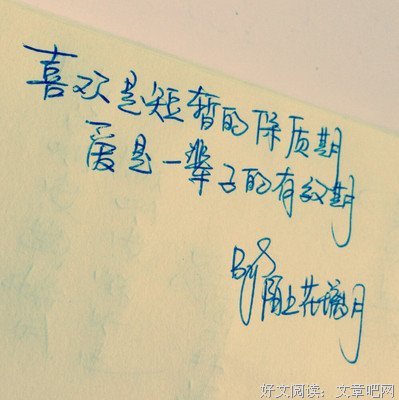 喜欢是短暂的保质期
爱是一辈子的有效期
By
陌上花
月
好文阅读：文章吧网